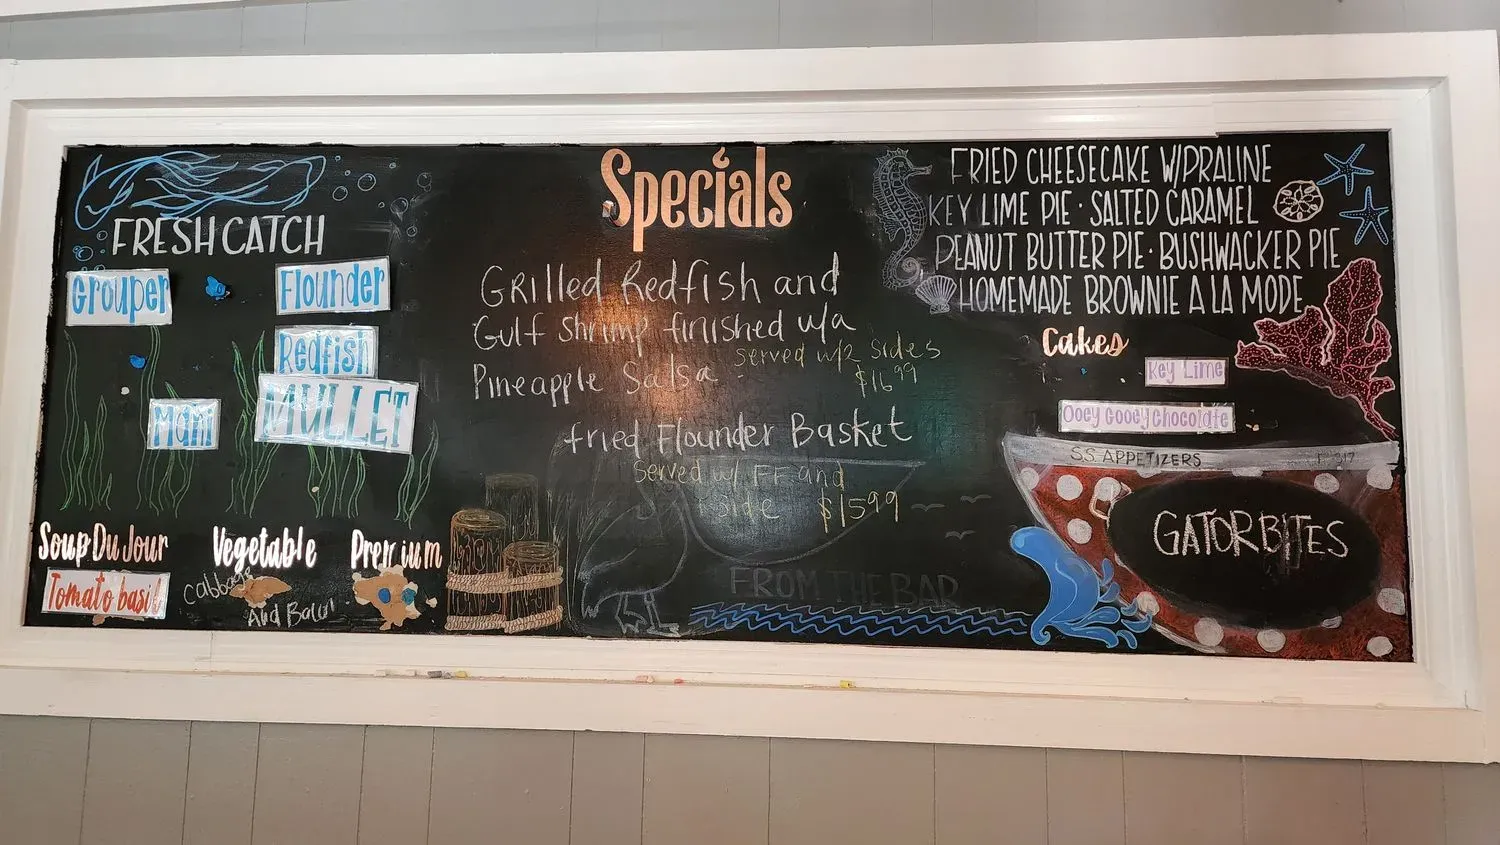 FRESH CATCH
Grouper
Flounder
Redfish
Mahi
MULLET
Soup Du Jour
Tomato basil
Vegetable
Cabbage
And Bacon
Premium
Specials
Grilled Redfish and
Gulf Shrimp finished w/a
Pineapple Salsa
Served w/2 Sides
$16.99
fried Flounder Basket
Served w/ FF and
side $15.99
FROM THE BAR
FRIED CHEESECAKE W/PRALINE
KEY LIME PIE · SALTED CARAMEL
PEANUT BUTTER PIE · BUSHWACKER PIE
HOMEMADE BROWNIE A LA MODE
Cakes
Key Lime
Ooey Gooey chocolate
SS APPETIZERS
GATOR BITES